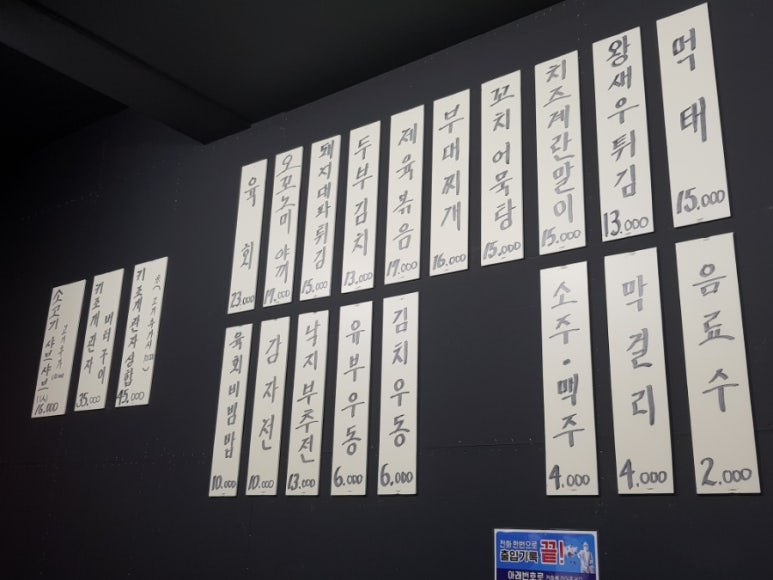 소고기 샤브샤브
16,000
키조개 관자
버터구이
35,000
키조개관자삼합
45,000
육회
23,000
오꼬노미야끼
17,000
돼지대파튀김
15,000
두부김치
13,000
제육볶음
17,000
부대찌개
16,000
꼬치어묵탕
15,000
치즈계란말이
15,000
왕새우튀김
13,000
먹태
15,000
육회비빔밥
10,000
감자전
10,000
낙지부추전
13,000
유부우동
6,000
김치우동
6,000
소주·맥주
4,000
막걸리
4,000
음료수
2,000
전화 한번으로
출입기록 끝!
아래번호로